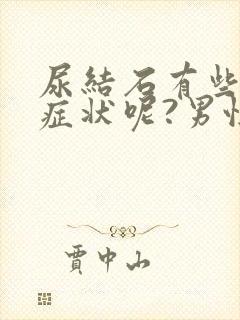 尿結石有些
症状呢?男性
賈中山